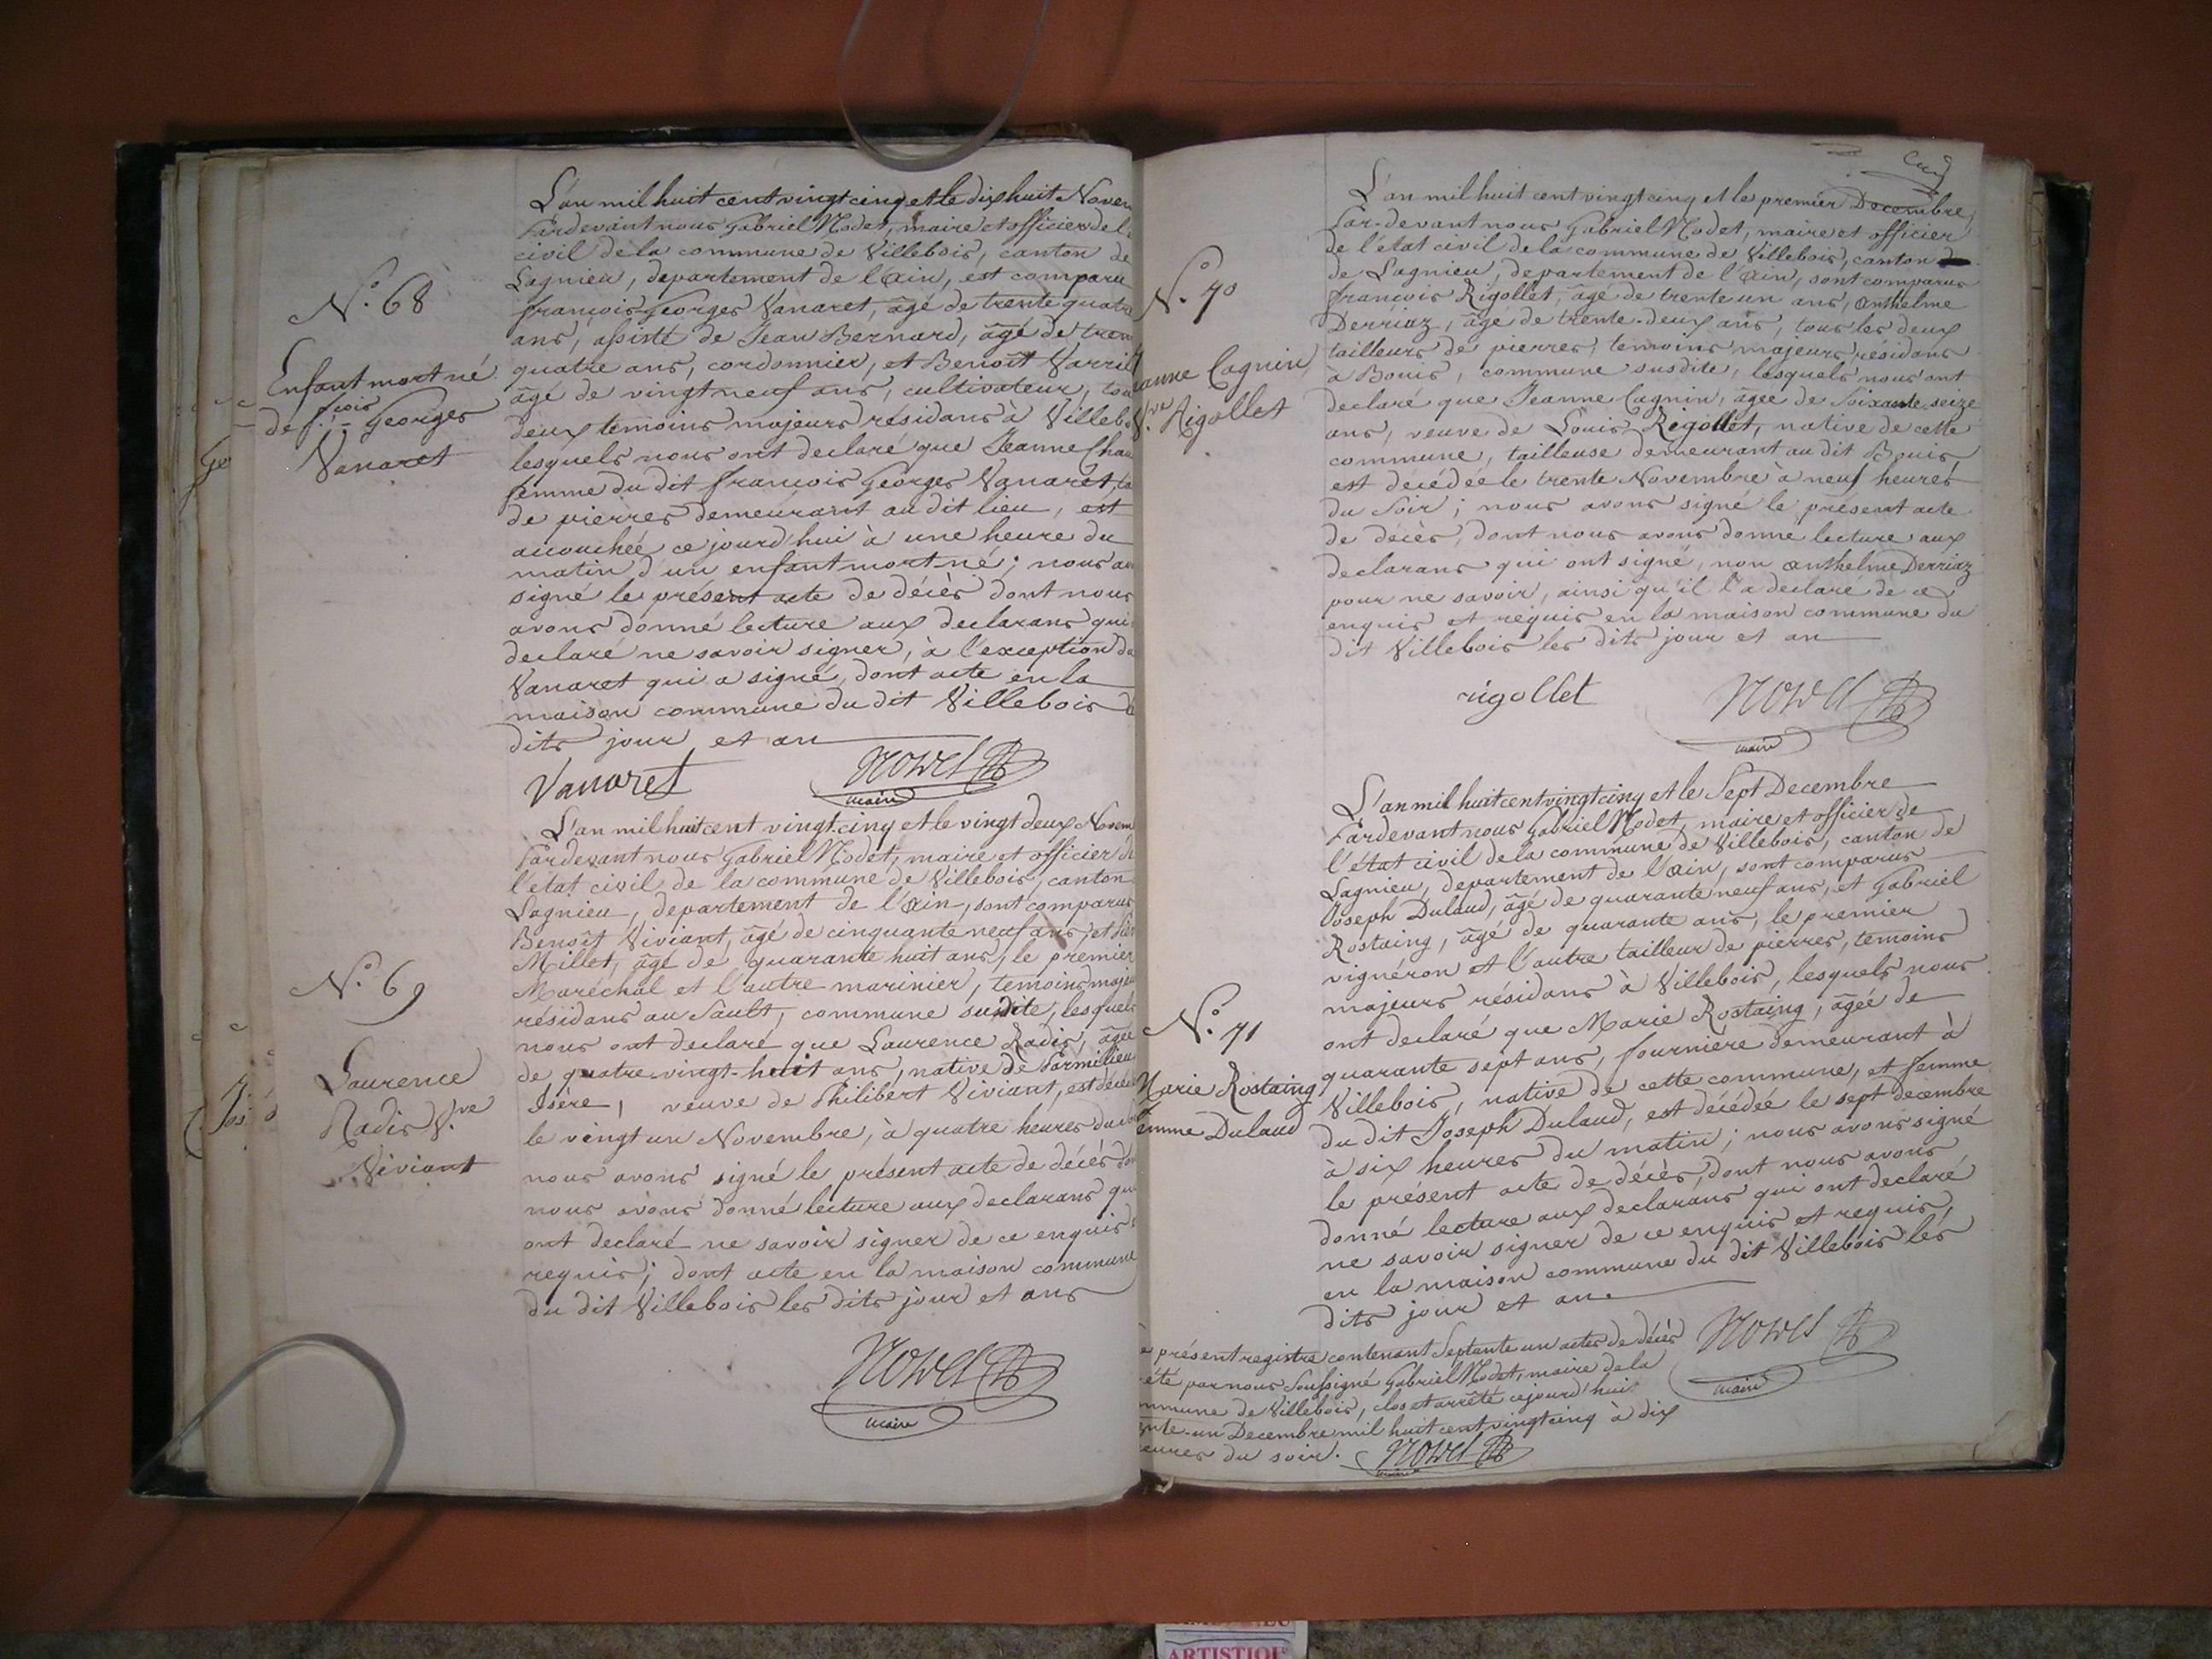 L'an mil huit cent vingt cinq et le dix huit Novem
Pardevant nous Gabriel Nodet, maire et officier de l'
civil de la commune de Villebois, canton de
Lagnieu, departement de l'ain, est comparu
N.° 68
françois Georges Vanaret, âgé de trente quatre
ans, assisté de Jean Bernard, âgé de tren
Enfant mort né
quatre ans, cordonnier, et Benoît
de f.çois Georges
âgé de vingt neuf ans, cultivateur, tou
Vanaret
deux temoins majeurs résidans à Villebo
lesquels nous ont declaré que Jeanne Chau
femme du dit françois Georges Vanaret, ta
de pierres demeurant au dit lieu, est
accouchée ce jourd'hui à une heure du
matin d'un enfant mort né; nous av
signé le présent acte de décès dont nous
avons donné lecture aux declarans qui
declaré ne savoir signer, à l'exception du
Vanaret qui a signé, dont acte en la
maison commune du dit Villebois
dits jour et an
Vanaret
Nodet
maire
L'an mil huit cent vingt cinq et le vingt deux Novem
Pardevant nous Gabriel Nodet, maire et officier de
l'état civil de la commune de Villebois, canton
Lagnieu, departement de l'ain, sont comparus
Benoît Viviant, âgé de cinquante neuf ans, et
Millet, âgé de quarante huit ans, le premier
N.° 69
Maréchal et l'autre marinier, temoins maje
résidans au Sault, commune susdite, lesquels
nous ont declaré que Laurence Radis, âgée
Laurence
de quatre-vingt-huit ans, native de Parmilieu
Radis V.ve
Isère, veuve de Philibert Viviant, est décéd
Viviant
le vingt un Novembre, à quatre heures du
nous avons signé le présent acte de décès don
nous avons donné lecture aux declarans qui
ont declaré ne savoir signer de ce enquis
requis; dont acte en la maison commune
du dit Villebois les dits jour et ans
Nodet
maire
L'an mil huit cent vingt cinq et le premier Decembre,
Par-devant nous Gabriel Nodet, maire et officier
de l'état civil de la commune de Villebois, canton
de Lagnieu, departement de l'ain, sont comparus
N.° 70
françois Rigollet, âgé de trente un ans, anthelme
Derriaz, âgé de trente-deux ans, tous les deux
tailleurs de pierres, temoins majeurs résidans
eanne Cagnin
à Bouis, commune susdite, lesquels nous ont
V.ve Rigollet
declaré que Jeanne Cagnin, âgée de Soixante-seize
ans, veuve de Louis Rigollet, native de cette
commune, tailleuse demeurant au dit Bouis,
est décédée le trente Novembre à neuf heures
du Soir; nous avons signé le présent acte
de décès, dont nous avons donné lecture aux
declarans qui ont signé, non anthelme Derriaz
pour ne savoir, ainsi qu'il l'a declaré de ce
enquis et requis en la maison commune du
dit Villebois les dits jour et an
rigollet
Nodet
maire
L'an mil huit cent vingt cinq et le Sept Decembre
Pardevant nous Gabriel Nodet, maire et officier de
l'état civil de la commune de Villebois, canton de
Lagnieu, departement de l'ain, sont comparus
Joseph Dulaud, âgé de quarante neuf ans, et Gabriel
Rostaing, âgé de quarante ans, le premier
vignéron et l'autre tailleur de pierres, temoins
majeurs résidans à Villebois, lesquels nous
N.° 71
ont declaré que Marie Rostaing, âgée de
quarante sept ans, fournière demeurant à
Marie Rostaing
Villebois, native de cette commune, et femme
femme Dulaud
du dit Joseph Dulaud, est décédée le sept decembre
à six heures du matin; nous avons signé
le présent acte de décès, dont nous avons
donné lecture aux declarans qui ont declaré
ne savoir signer de ce enquis et requis,
en la maison commune du dit Villebois les
dits jour et an.
Nodet
maire
e présent registre contenant Septante un actes de décès
été par nous Soussigné Gabriel Nodet, maire de la
ommune de Villebois, clos et arrêté cejourd'hui
ente-un Decembre mil huit cent vingt cinq à dix
eures du soir.
Nodet
maire
ARTISTIQU